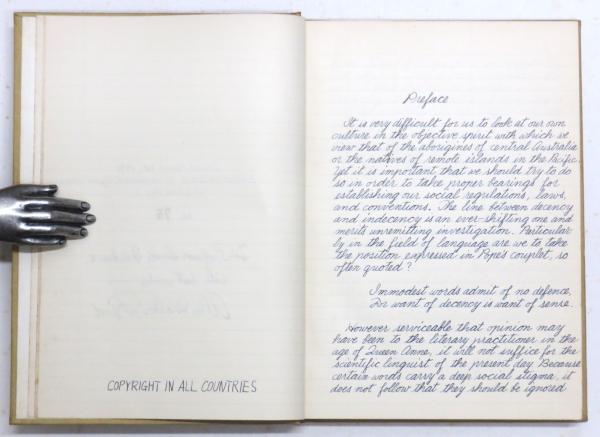 COPYRIGHT IN ALL COUNTRIES
Preface
It is very difficult for us to look at our own
culture in the objective spirit with which we
view that of the aborigines of central Australia
or the natives of remote islands in the Pacific.
Yet it is important that we should try to do
so in order to take proper bearings for
establishing our social regulations, laws,
and conventions. The line between decency
and indecency is an ever-shifting one and
merits unremitting investigation. Particular-
ly in the field of language are we to take
the position expressed in Pope's couplet, so
often quoted?
Immodest words admit of no defence,
For want of decency is want of sense.
However serviceable that opinion may
have been to the literary practitioner in the
age of Queen Anne, it will not suffice for the
scientific linguist of the present day. Because
certain words carry a deep social stigma, it
does not follow that they should be ignored